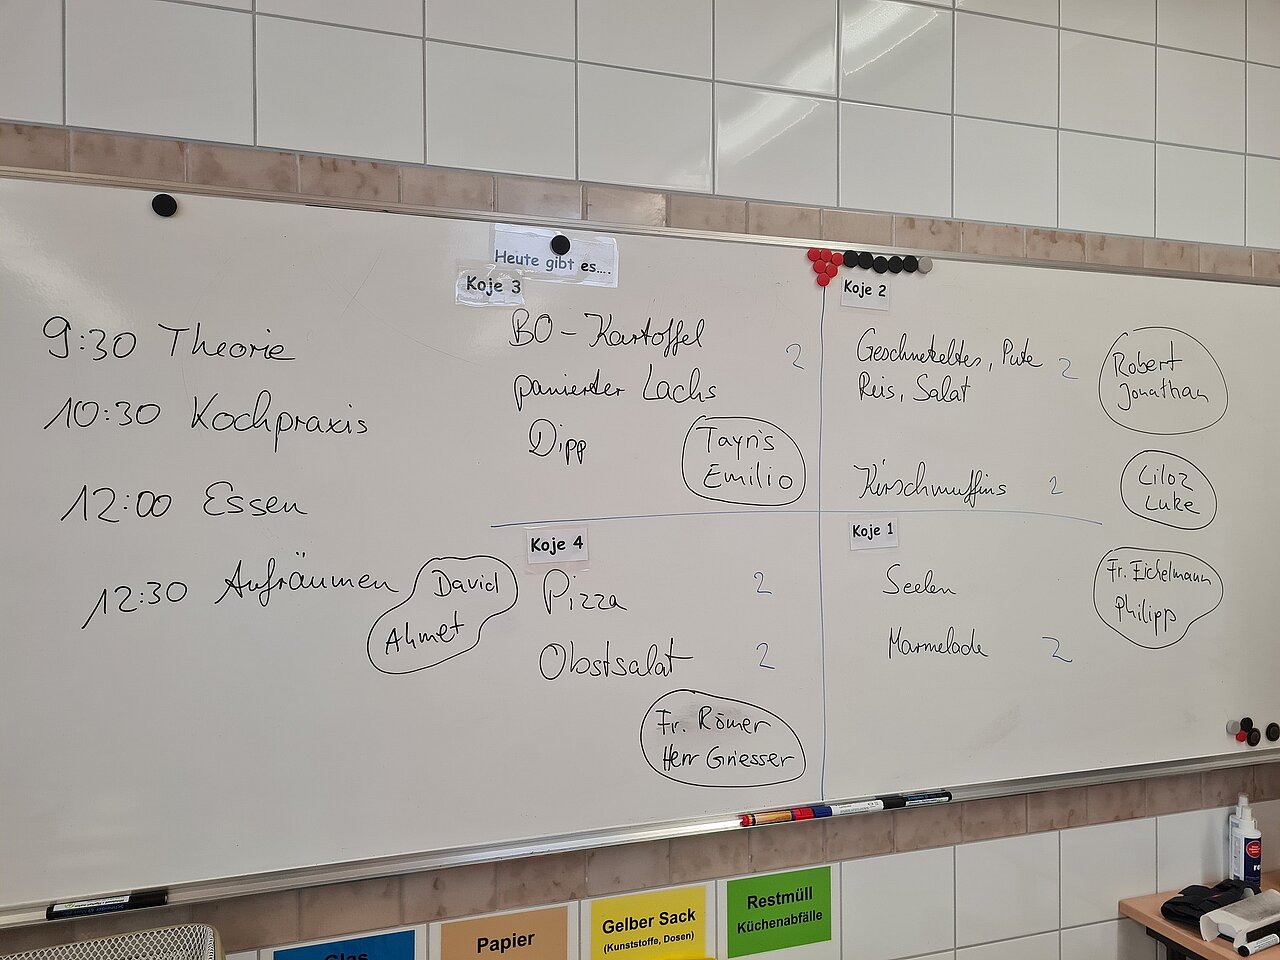 Heute gibt es....
9:30 Theorie
10:30 Kochpraxis
12:00 Essen
12:30 Aufräumen
Koje 3
BO-Kartoffel
2
panierter Lachs
Dipp
Tayris
Emilio
Koje 2
Geschnetzeltes, Pute 2
Reis, Salat
Robert
Jonathan
Kirschmuffins 2
Liloz
Luke
Koje 4
David
Ahmet
Pizza 2
Obstsalat 2
Fr. Römer
Herr Griesser
Koje 1
Seelen
Marmelade 2
Fr. Eichelmann
Philipp
Glas
Papier
Gelber Sack
(Kunststoffe, Dosen)
Restmüll
Küchenabfälle